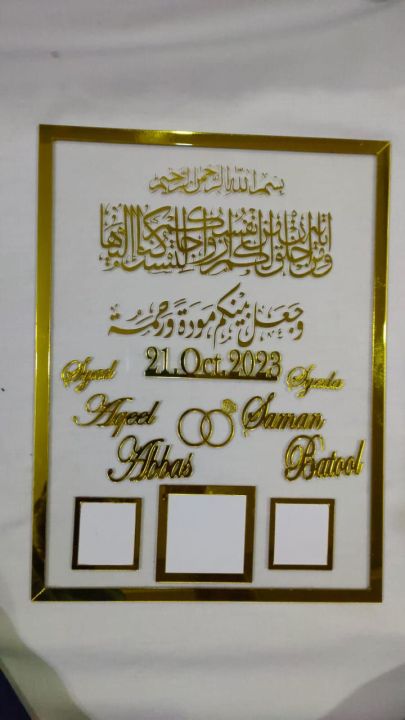 بسم الله الرحمن الرحيم
ومن آياته أن خلق لكم من أنفسكم أزواجا لتسكنوا إليها
وجعل بينكم مودة ورحمة
21.Oct.2023
Syed Syeda
Aqeel Saman
Abbas Batool